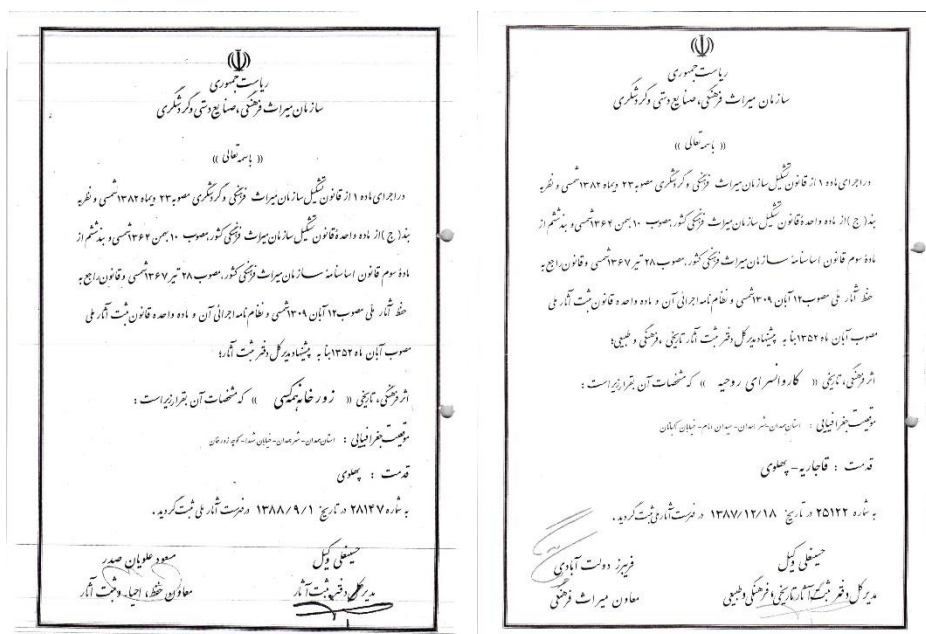 ریاست جمهوری
سازمان میراث فرهنگی، صنایع دستی و گردشگری
« باسمه تعالی »
در اجرای ماده ۱ از قانون تشکیل سازمان میراث فرهنگی و گردشگری مصوبه ۲۳ دیماه ۱۳۸۲ شمسی و نظر به
بند ( ج ) از ماده واحده قانون تشکیل سازمان میراث فرهنگی کشور مصوب ۱۰ بهمن ۱۳۶۴ شمسی و بند ششم از
مادهٔ سوم قانون اساسنامهٔ سازمان میراث فرهنگی کشور، مصوب ۲۸ تیر ۱۳۶۷ شمسی و قانون راجع به
حفظ آثار ملی مصوب ۱۲ آبان ۱۳۰۹ شمسی و نظام نامه اجرائی آن و ماده واحده قانون ثبت آثار ملی
مصوب آبان ماه ۱۳۵۲ بنا به پیشنهاد مدیر کل دفتر ثبت آثار؛
اثر فرهنگی، تاریخی « زورخانه نمکسی » که مشخصات آن بقرار زیر است :
موقعیت جغرافیایی : استان همدان - شهر همدان - خیابان شهدا - کوچه زورخانه
قدمت : پهلوی
به شماره ۲۸۱۴۷ در تاریخ ۱۳۸۸/۹/۱ در فهرست آثار ملی ثبت گردید .
حسینعلی وکیل
مدیر کل دفتر ثبت آثار
مسعود علویان صدر
معاون حفظ، احیاء و ثبت آثار
ریاست جمهوری
سازمان میراث فرهنگی، صنایع دستی و گردشگری
« باسمه تعالی »
در اجرای ماده ۱ از قانون تشکیل سازمان میراث فرهنگی و گردشگری مصوبه ۲۳ دیماه ۱۳۸۲ شمسی و نظر به
بند ( ج ) از ماده واحدهٔ قانون تشکیل سازمان میراث فرهنگی کشور مصوب ۱۰ بهمن ۱۳۶۴ شمسی و بند ششم از
مادهٔ سوم قانون اساسنامهٔ سازمان میراث فرهنگی کشور، مصوب ۲۸ تیر ۱۳۶۷ شمسی و قانون راجع به
حفظ آثار ملی مصوب ۱۲ آبان ۱۳۰۹ شمسی و نظام نامه اجرائی آن و ماده واحده قانون ثبت آثار ملی
مصوب آبان ماه ۱۳۵۲ بنا به پیشنهاد مدیر کل دفتر ثبت آثار تاریخی ، فرهنگی و طبیعی؛
اثر فرهنگی، تاریخی « کاروانسرای روحیه » که مشخصات آن بقرار زیر است :
موقعیت جغرافیایی : استان همدان - شهر همدان - میدان امام - خیابان اکباتان
قدمت : قاجاریه - پهلوی
به شماره ۲۵۱۲۲ در تاریخ ۱۳۸۷/۱۲/۱۸ در فهرست آثار ملی ثبت گردید .
حسینعلی وکیل
مدیر کل دفتر ثبت آثار تاریخی و فرهنگی و طبیعی
فریبرز دولت آبادی
معاون میراث فرهنگی